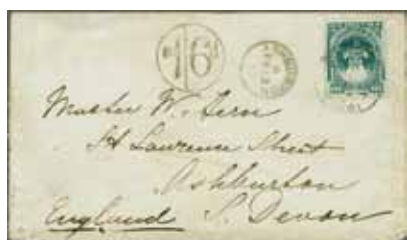 16
Master W. Fern
St Lawrence Street
Ashburton
England S. Devon